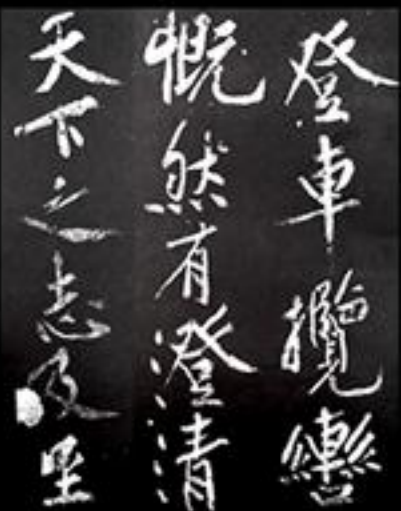 登車攬轡
慨然有澄清
天下之志及至